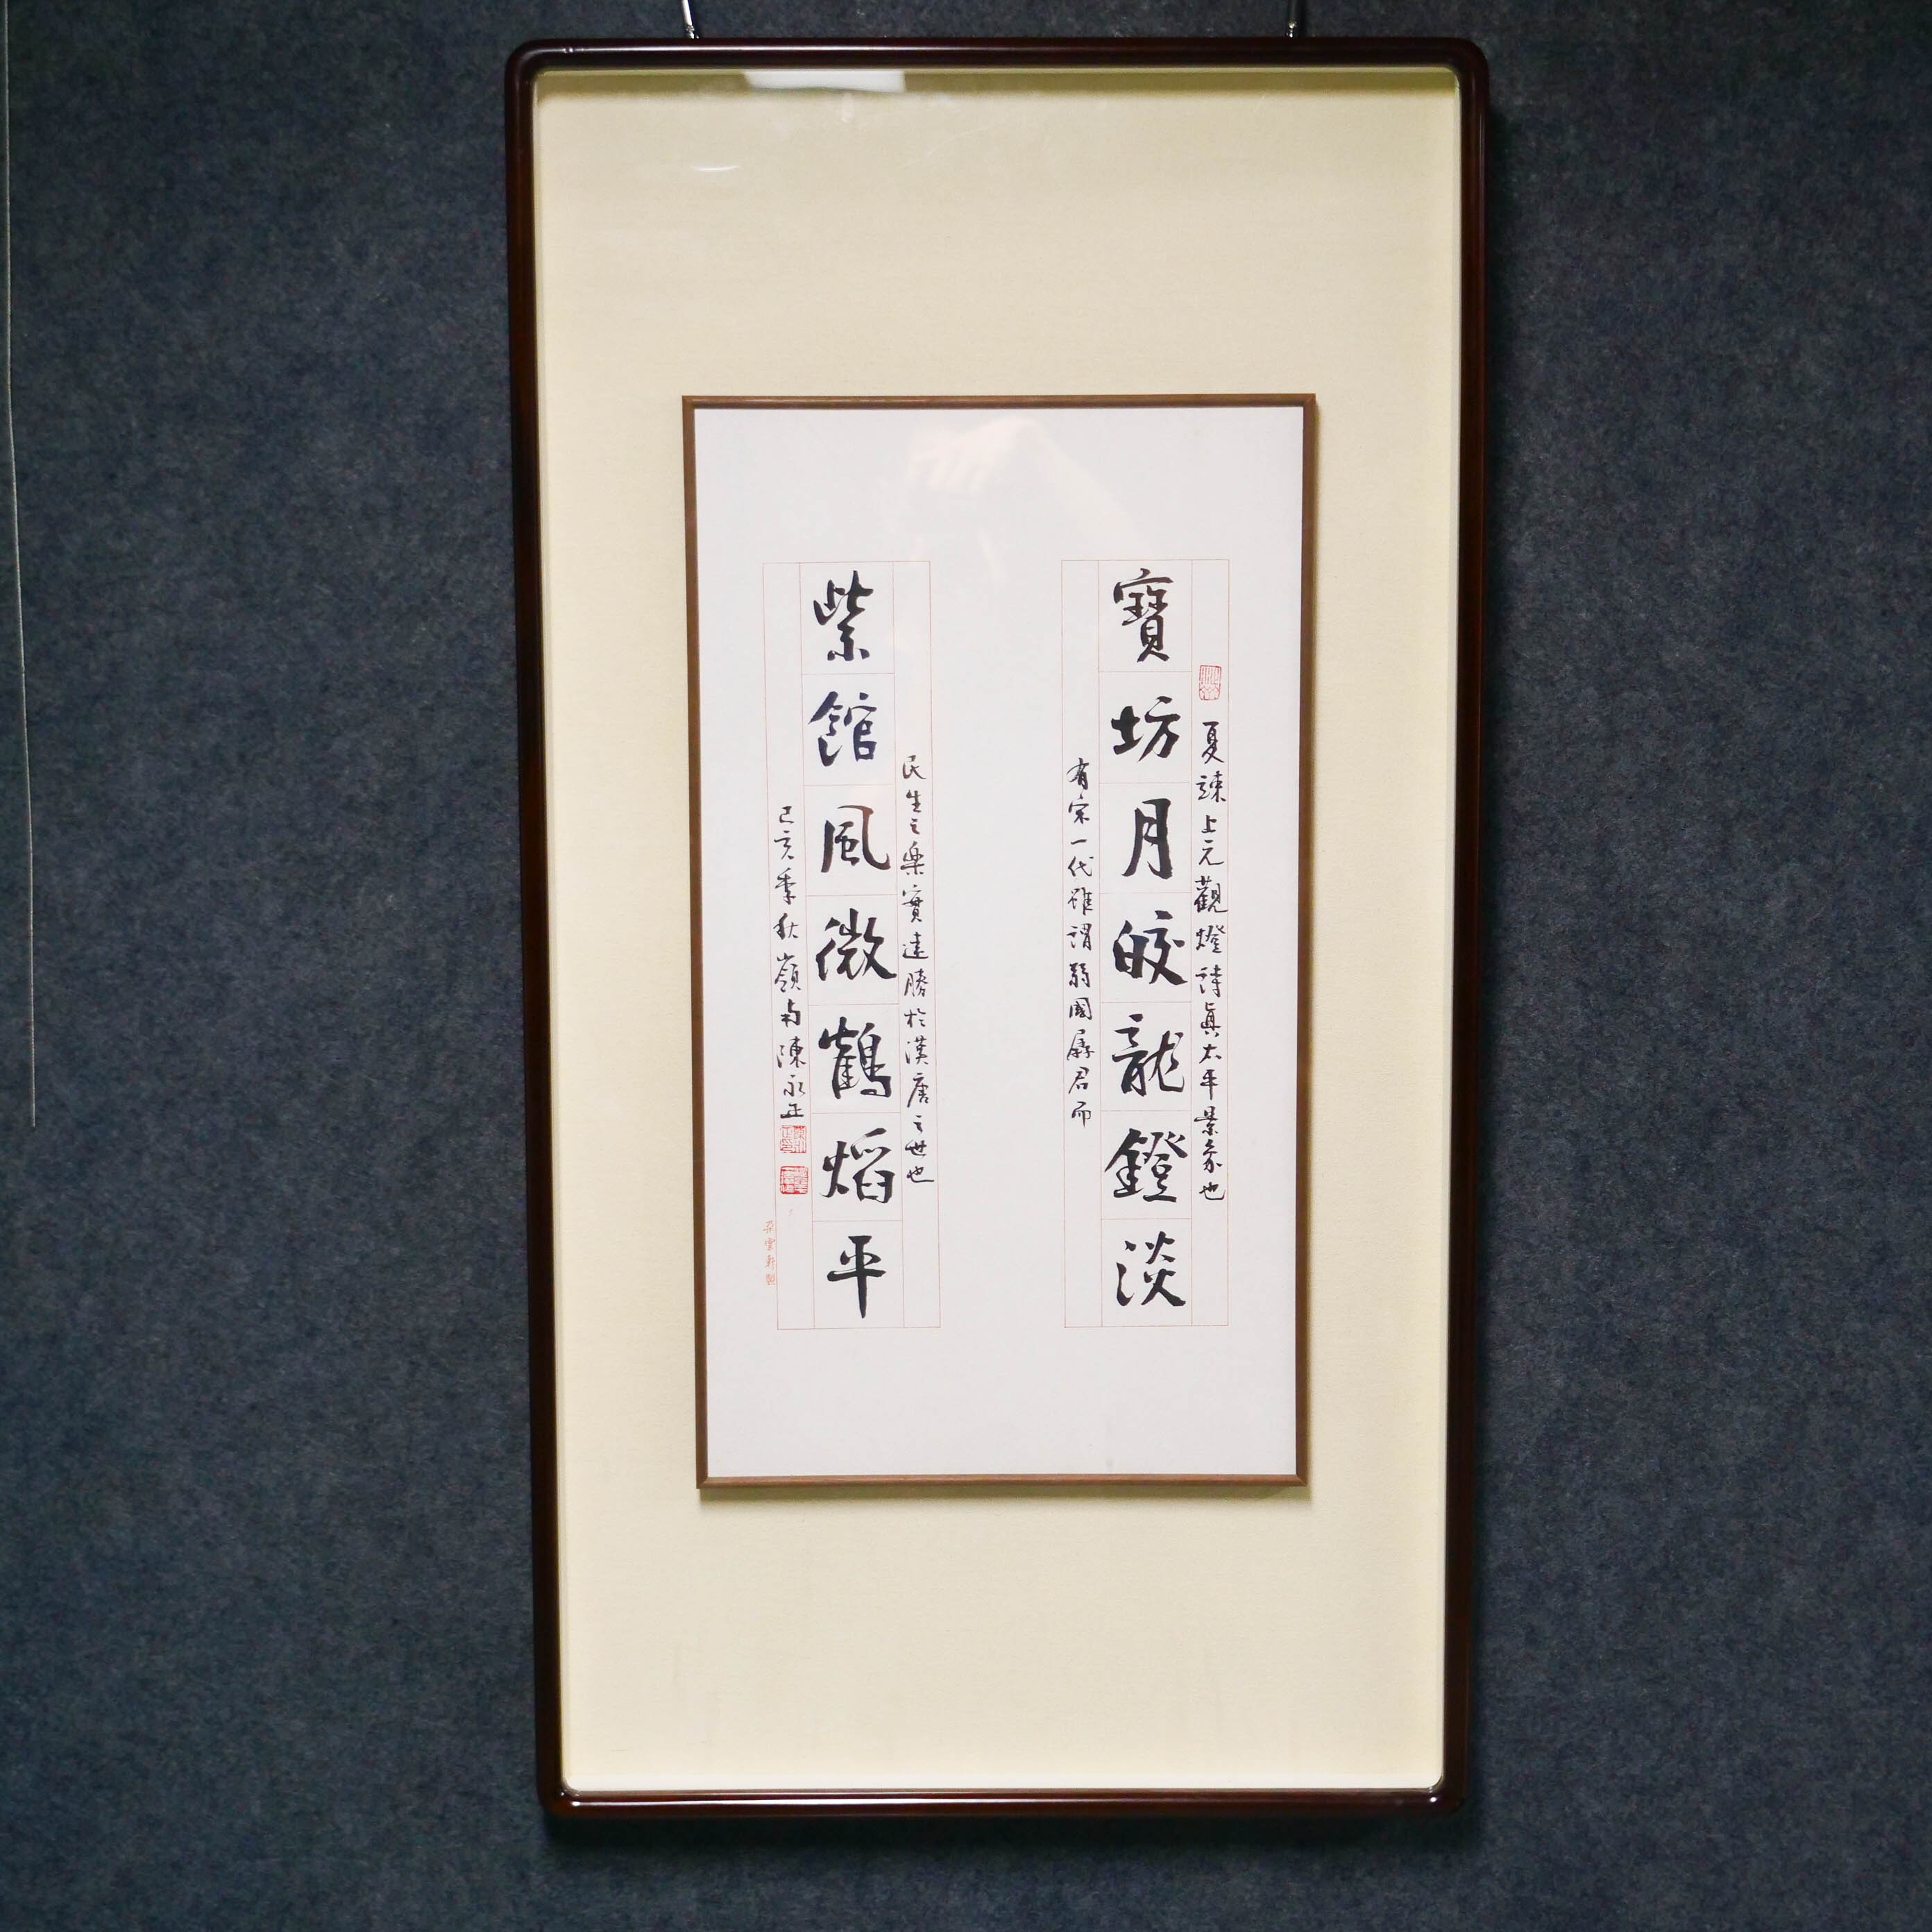 夏竦上元觀燈詩真太平景象也
寶坊月皎龍鐙淡
有宋一代雖謂弱國孱君而
民生之樂實遠勝於漢唐之世也
紫館風微鶴焰平
己亥季秋嶺南陳永正
朵雲軒製